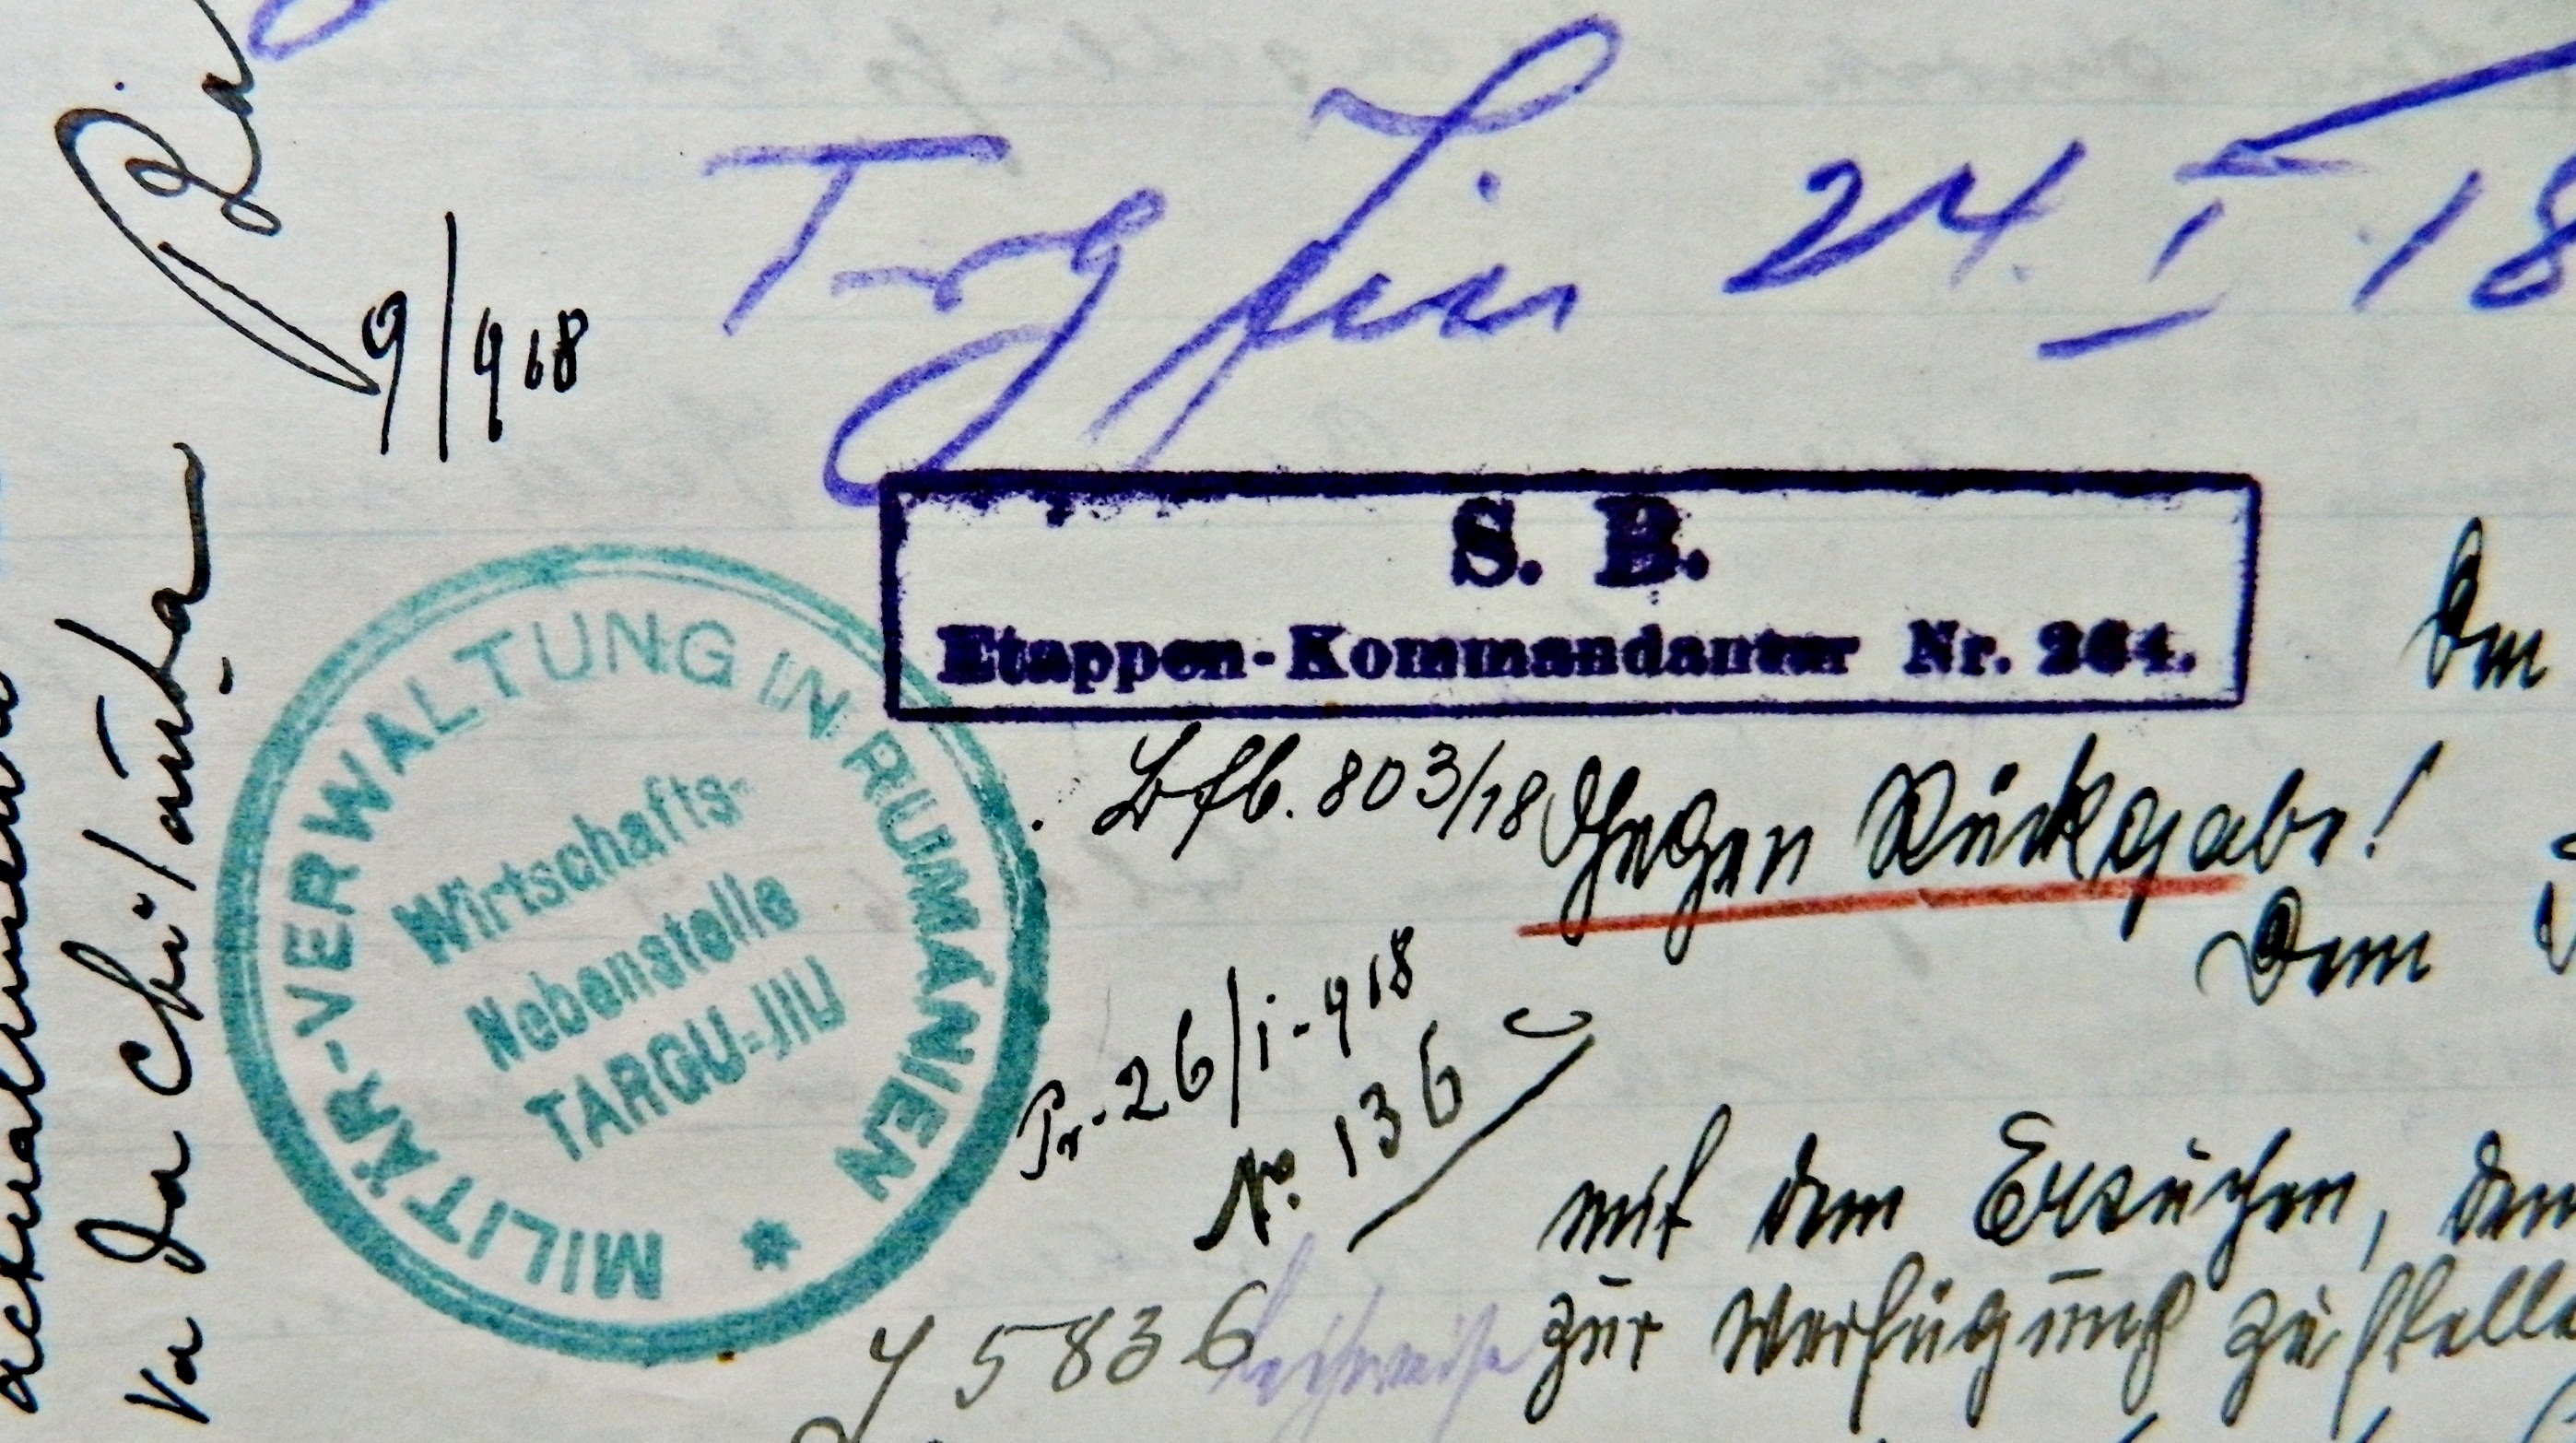 Trg Jiu 24. I 18
9/918
S. B.
Etappen-Kommandantur Nr. 264.
MILITÄR-VERWALTUNG IN RUMÄNIEN
Wirtschafts-
Nebenstelle
TARGU-JIU
Bfb. 803/18 Gegen Rückgabe!
Dem
Pr. 26/i-918
No. 136
mit dem Ersuchen, den
zur Verfügung zu stelle
5836 leihweise
va da chitanța